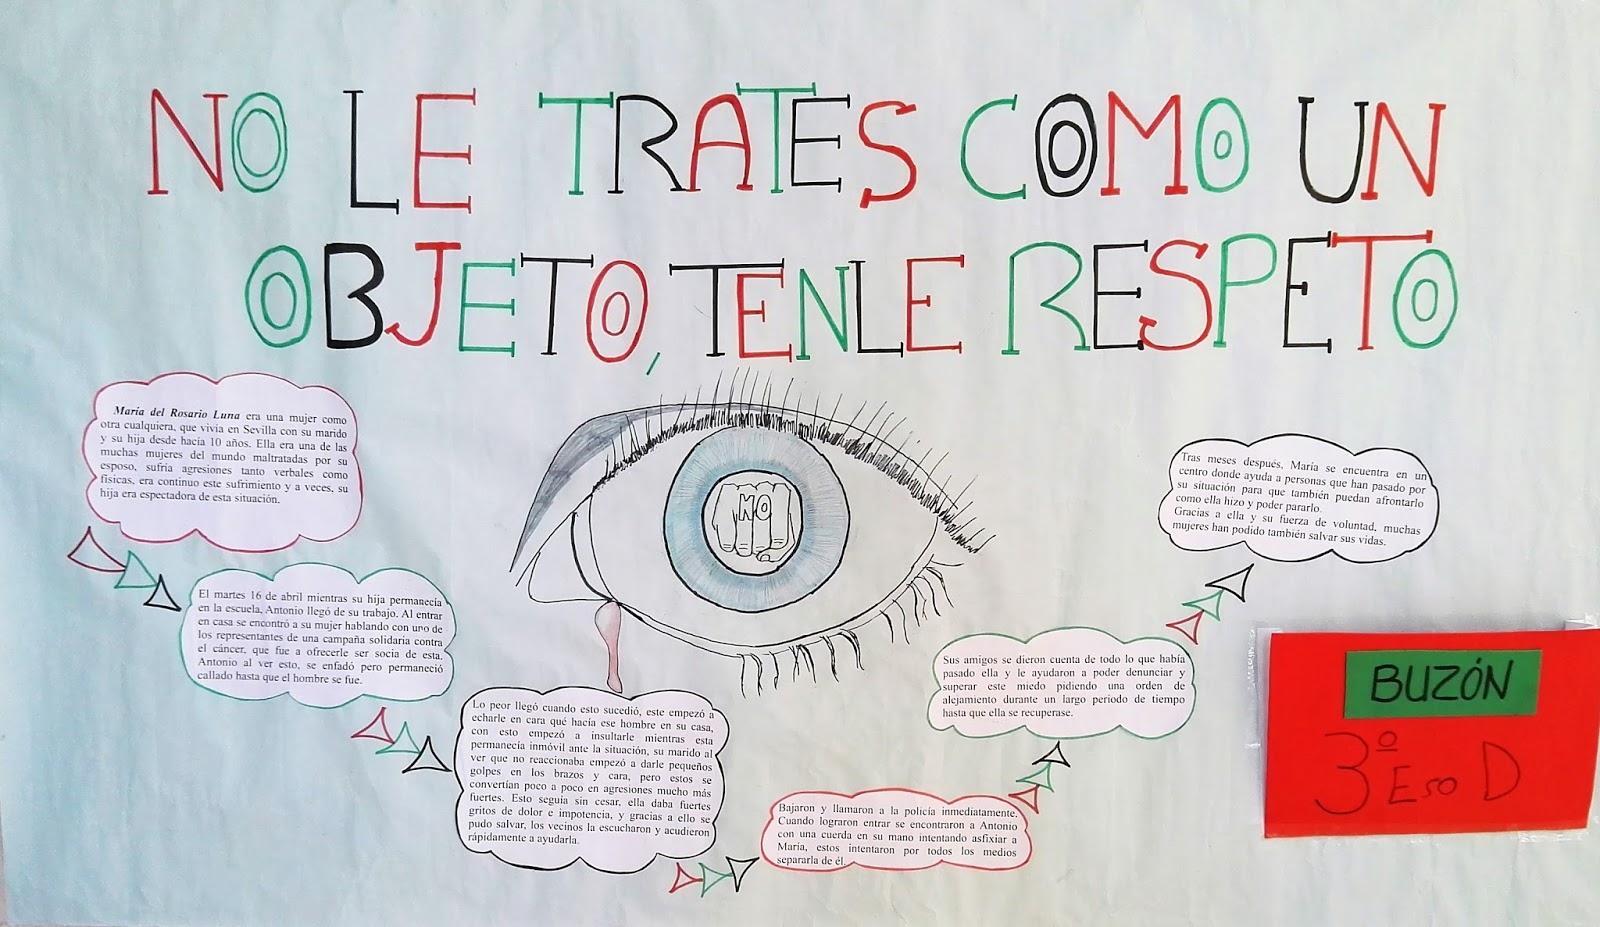 NO LE TRATES COMO UN
OBJETO, TENLE RESPETO
María del Rosario Luna era una mujer como
otra cualquiera, que vivía en Sevilla con su marido
y su hija desde hacía 10 años. Ella era una de las
muchas mujeres del mundo maltratadas por su
esposo, sufría agresiones tanto verbales como
físicas, era continuo este sufrimiento y a veces, su
hija era espectadora de esta situación.
El martes 16 de abril mientras su hija permanecía
en la escuela, Antonio llegó de su trabajo. Al entrar
en casa se encontró a su mujer hablando con uno de
los representantes de una campaña solidaria contra
el cáncer, que fue a ofrecerle ser socia de esta.
Antonio al ver esto, se enfadó pero permaneció
callado hasta que el hombre se fue.
Lo peor llegó cuando esto sucedió, este empezó a
echarle en cara qué hacía ese hombre en su casa,
con esto empezó a insultarle mientras esta
permanecía inmóvil ante la situación, su marido al
ver que no reaccionaba empezó a darle pequeños
golpes en los brazos y cara, pero estos se
convertían poco a poco en agresiones mucho más
fuertes. Esto seguía sin cesar, ella daba fuertes
gritos de dolor e impotencia, y gracias a ello se
pudo salvar, los vecinos la escucharon y acudieron
rápidamente a ayudarla.
Bajaron y llamaron a la policía inmediatamente.
Cuando lograron entrar se encontraron a Antonio
con una cuerda en su mano intentando asfixiar a
María, estos intentaron por todos los medios
separarla de él.
Sus amigos se dieron cuenta de todo lo que había
pasado ella y le ayudaron a poder denunciar y
superar este miedo pidiendo una orden de
alejamiento durante un largo periodo de tiempo
hasta que ella se recuperase.
Tras meses después, María se encuentra en un
centro donde ayuda a personas que han pasado por
su situación para que también puedan afrontarlo
como ella hizo y poder pararlo.
Gracias a ella y su fuerza de voluntad, muchas
mujeres han podido también salvar sus vidas.
NO
BUZÓN
3º ESO D